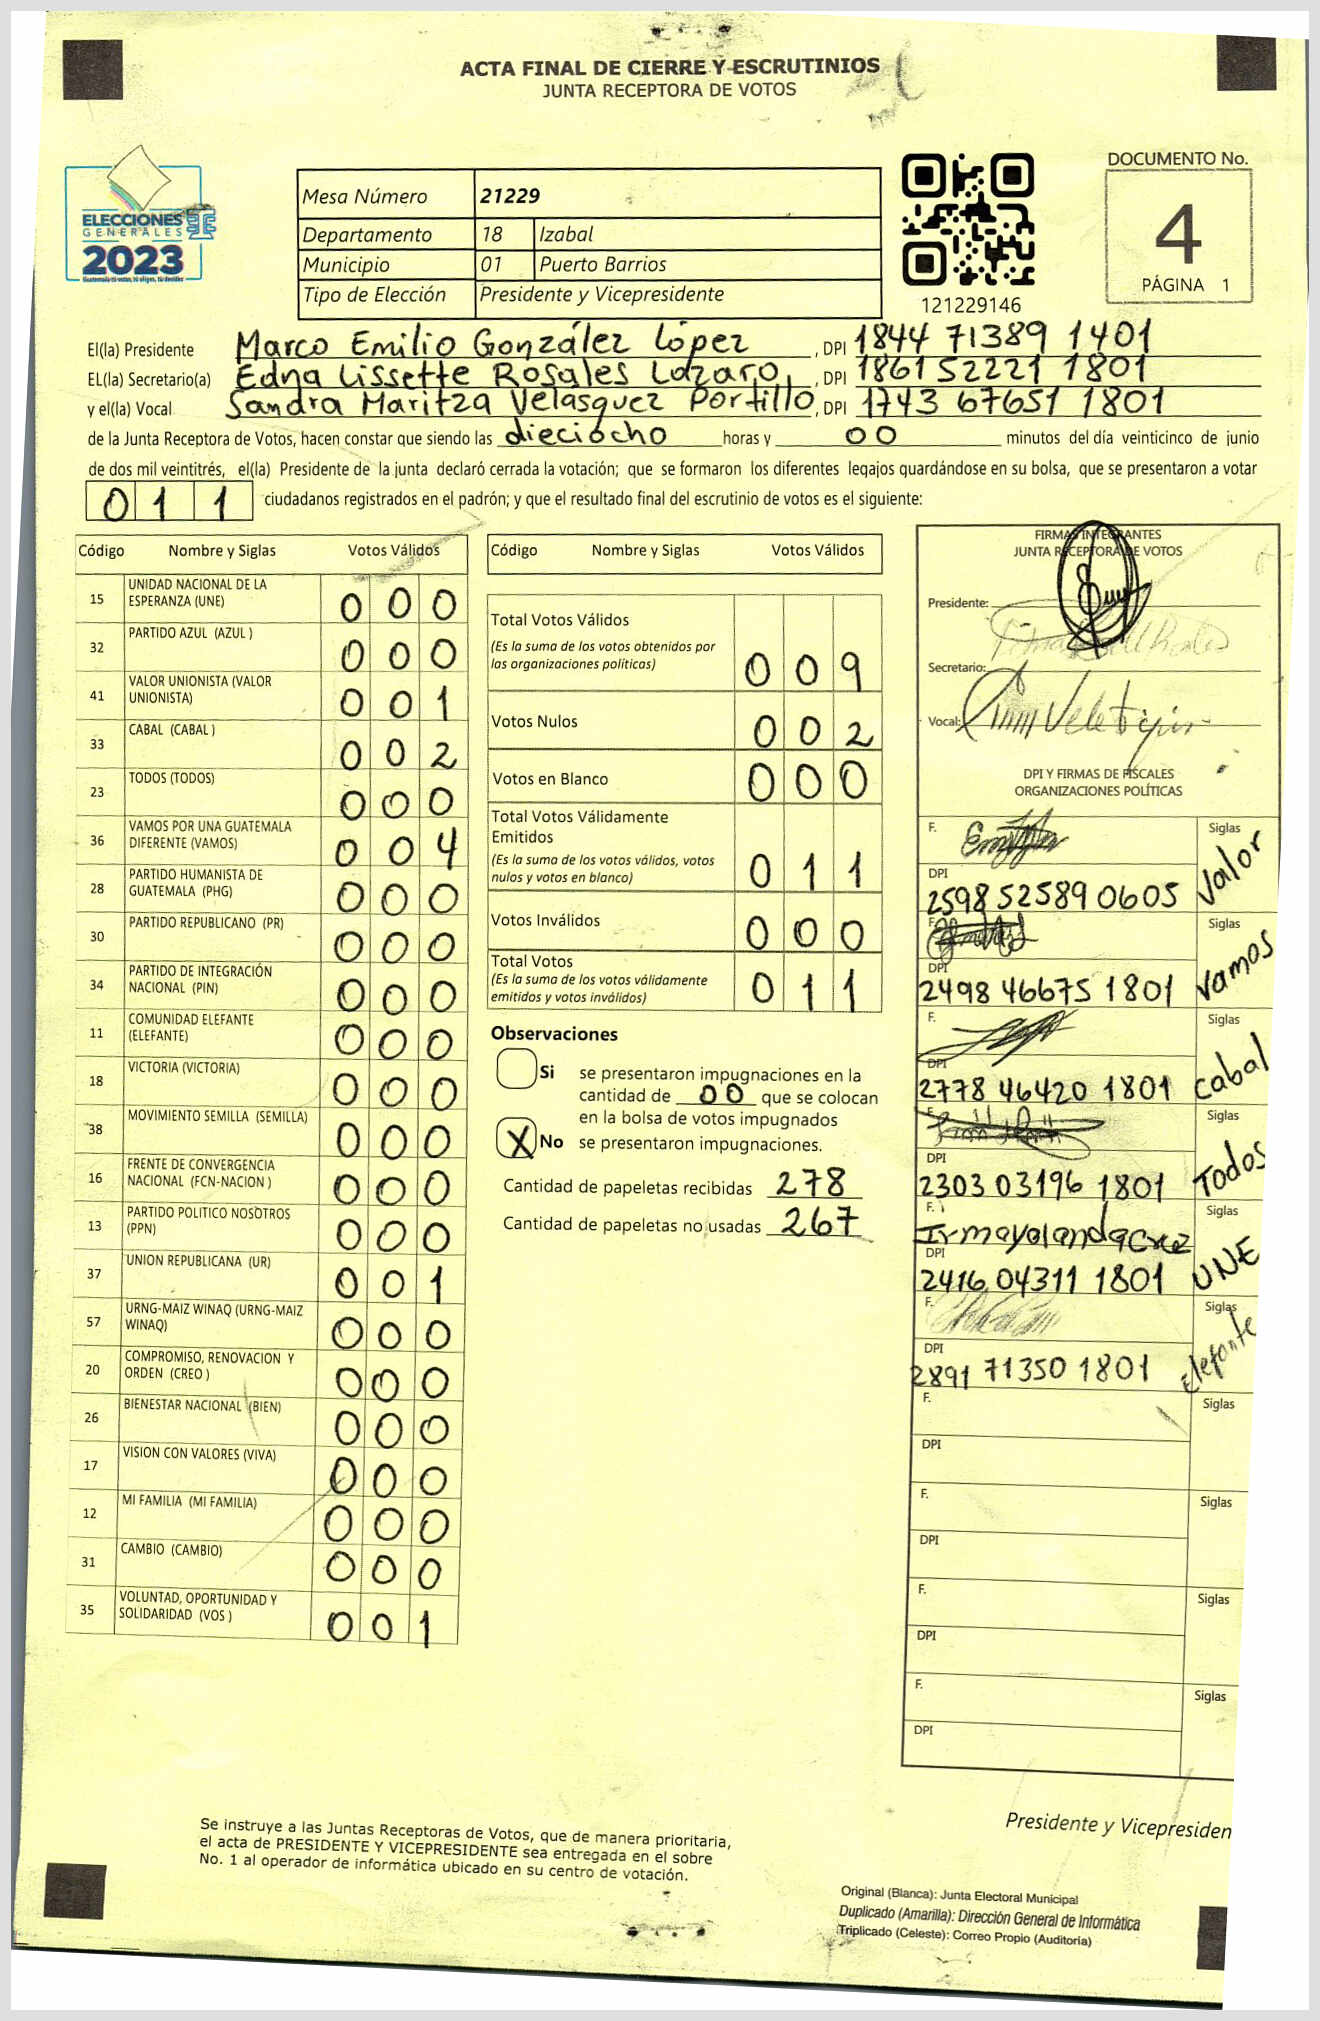 ACTA FINAL DE CIERRE Y ESCRUTINIOS
JUNTA RECEPTORA DE VOTOS
ELECCIONES
GENERALES
2023
Mesa Número 21229
Departamento 18 Izabal
Municipio 01 Puerto Barrios
Tipo de Elección Presidente y Vicepresidente
121229146
DOCUMENTO No.
4
PÁGINA 1
El(la) Presidente Marco Emilio González López, DPI 1844 71389 1401
EL(la) Secretario(a) Edna Lissette Rosales Lázaro, DPI 1861 52221 1801
y el(la) Vocal Sandra Maritza Velasquez Portillo, DPI 1743 67651 1801
de la Junta Receptora de Votos, hacen constar que siendo las dieciocho horas y 00 minutos del día veinticinco de junio
de dos mil veintitrés, el(la) Presidente de la junta declaró cerrada la votación; que se formaron los diferentes legajos guardándose en su bolsa, que se presentaron a votar
011 ciudadanos registrados en el padrón; y que el resultado final del escrutinio de votos es el siguiente:
Código Nombre y Siglas Votos Válidos
15 UNIDAD NACIONAL DE LA ESPERANZA (UNE) 000
32 PARTIDO AZUL (AZUL ) 000
41 VALOR UNIONISTA (VALOR UNIONISTA) 001
33 CABAL (CABAL ) 002
23 TODOS (TODOS) 000
36 VAMOS POR UNA GUATEMALA DIFERENTE (VAMOS) 004
28 PARTIDO HUMANISTA DE GUATEMALA (PHG) 000
30 PARTIDO REPUBLICANO (PR) 000
34 PARTIDO DE INTEGRACIÓN NACIONAL (PIN) 000
11 COMUNIDAD ELEFANTE (ELEFANTE) 000
18 VICTORIA (VICTORIA) 000
38 MOVIMIENTO SEMILLA (SEMILLA) 000
16 FRENTE DE CONVERGENCIA NACIONAL (FCN-NACION ) 000
13 PARTIDO POLITICO NOSOTROS (PPN) 000
37 UNION REPUBLICANA (UR) 001
57 URNG-MAIZ WINAQ (URNG-MAIZ WINAQ) 000
20 COMPROMISO, RENOVACION Y ORDEN (CREO ) 000
26 BIENESTAR NACIONAL (BIEN) 000
17 VISION CON VALORES (VIVA) 000
12 MI FAMILIA (MI FAMILIA) 000
31 CAMBIO (CAMBIO) 000
35 VOLUNTAD, OPORTUNIDAD Y SOLIDARIDAD (VOS ) 001
Código Nombre y Siglas Votos Válidos
Total Votos Válidos
(Es la suma de los votos obtenidos por
las organizaciones políticas) 009
Votos Nulos 002
Votos en Blanco 000
Total Votos Válidamente
Emitidos
(Es la suma de los votos válidos, votos
nulos y votos en blanco) 011
Votos Inválidos 000
Total Votos
(Es la suma de los votos válidamente
emitidos y votos inválidos) 011
Observaciones
Si se presentaron impugnaciones en la
cantidad de 00 que se colocan
en la bolsa de votos impugnados
X No se presentaron impugnaciones.
Cantidad de papeletas recibidas 278
Cantidad de papeletas no usadas 267
FIRMAS INTEGRANTES
JUNTA RECEPTORA DE VOTOS
Presidente:
Secretario:
Vocal:
DPI Y FIRMAS DE FISCALES
ORGANIZACIONES POLÍTICAS
F. Siglas Valor
DPI 2598 52589 0605
F. Siglas Vamos
DPI 2498 46675 1801
F. Siglas Cabal
DPI 2778 46420 1801
F. Siglas Todos
DPI 2303 03196 1801
F. Irma yolanda Cruz Siglas UNE
DPI 2416 04311 1801
F. Siglas Elefante
DPI 2891 71350 1801
F. Siglas
DPI
F. Siglas
DPI
F. Siglas
DPI
F. Siglas
DPI
Presidente y Vicepresiden
Se instruye a las Juntas Receptoras de Votos, que de manera prioritaria,
el acta de PRESIDENTE Y VICEPRESIDENTE sea entregada en el sobre
No. 1 al operador de informática ubicado en su centro de votación.
Original (Blanca): Junta Electoral Municipal
Duplicado (Amarilla): Dirección General de Informática
Triplicado (Celeste): Correo Propio (Auditoria)